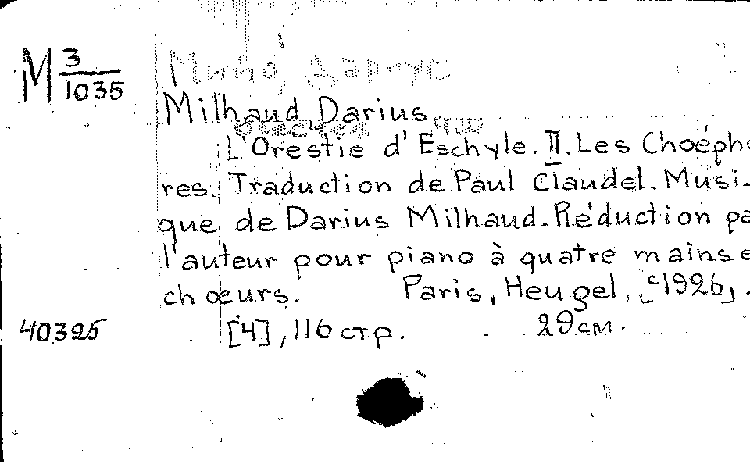 М 3/1035
Мийо, Дариус
Milhaud, Darius
L'Orestie d'Eschyle. II. Les Choépho
res. Traduction de Paul Claudel. Musi-
que de Darius Milhaud. Réduction pa
l'auteur pour piano à quatre mains e
chœurs. Paris, Heugel, [c1926].
40325 [4], 116 стр. 29 см.